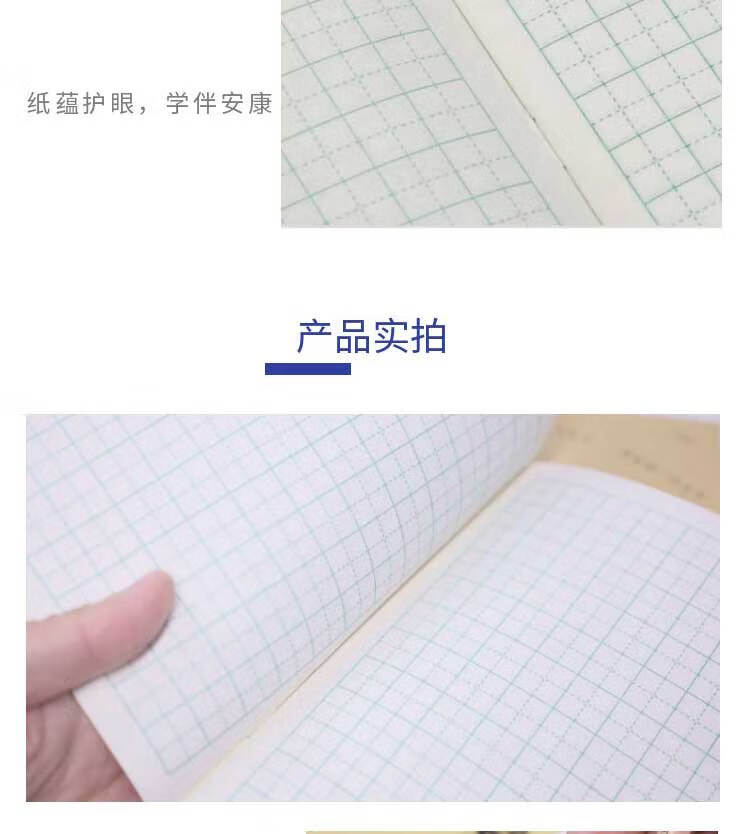 纸蕴护眼，学伴安康
产品实拍